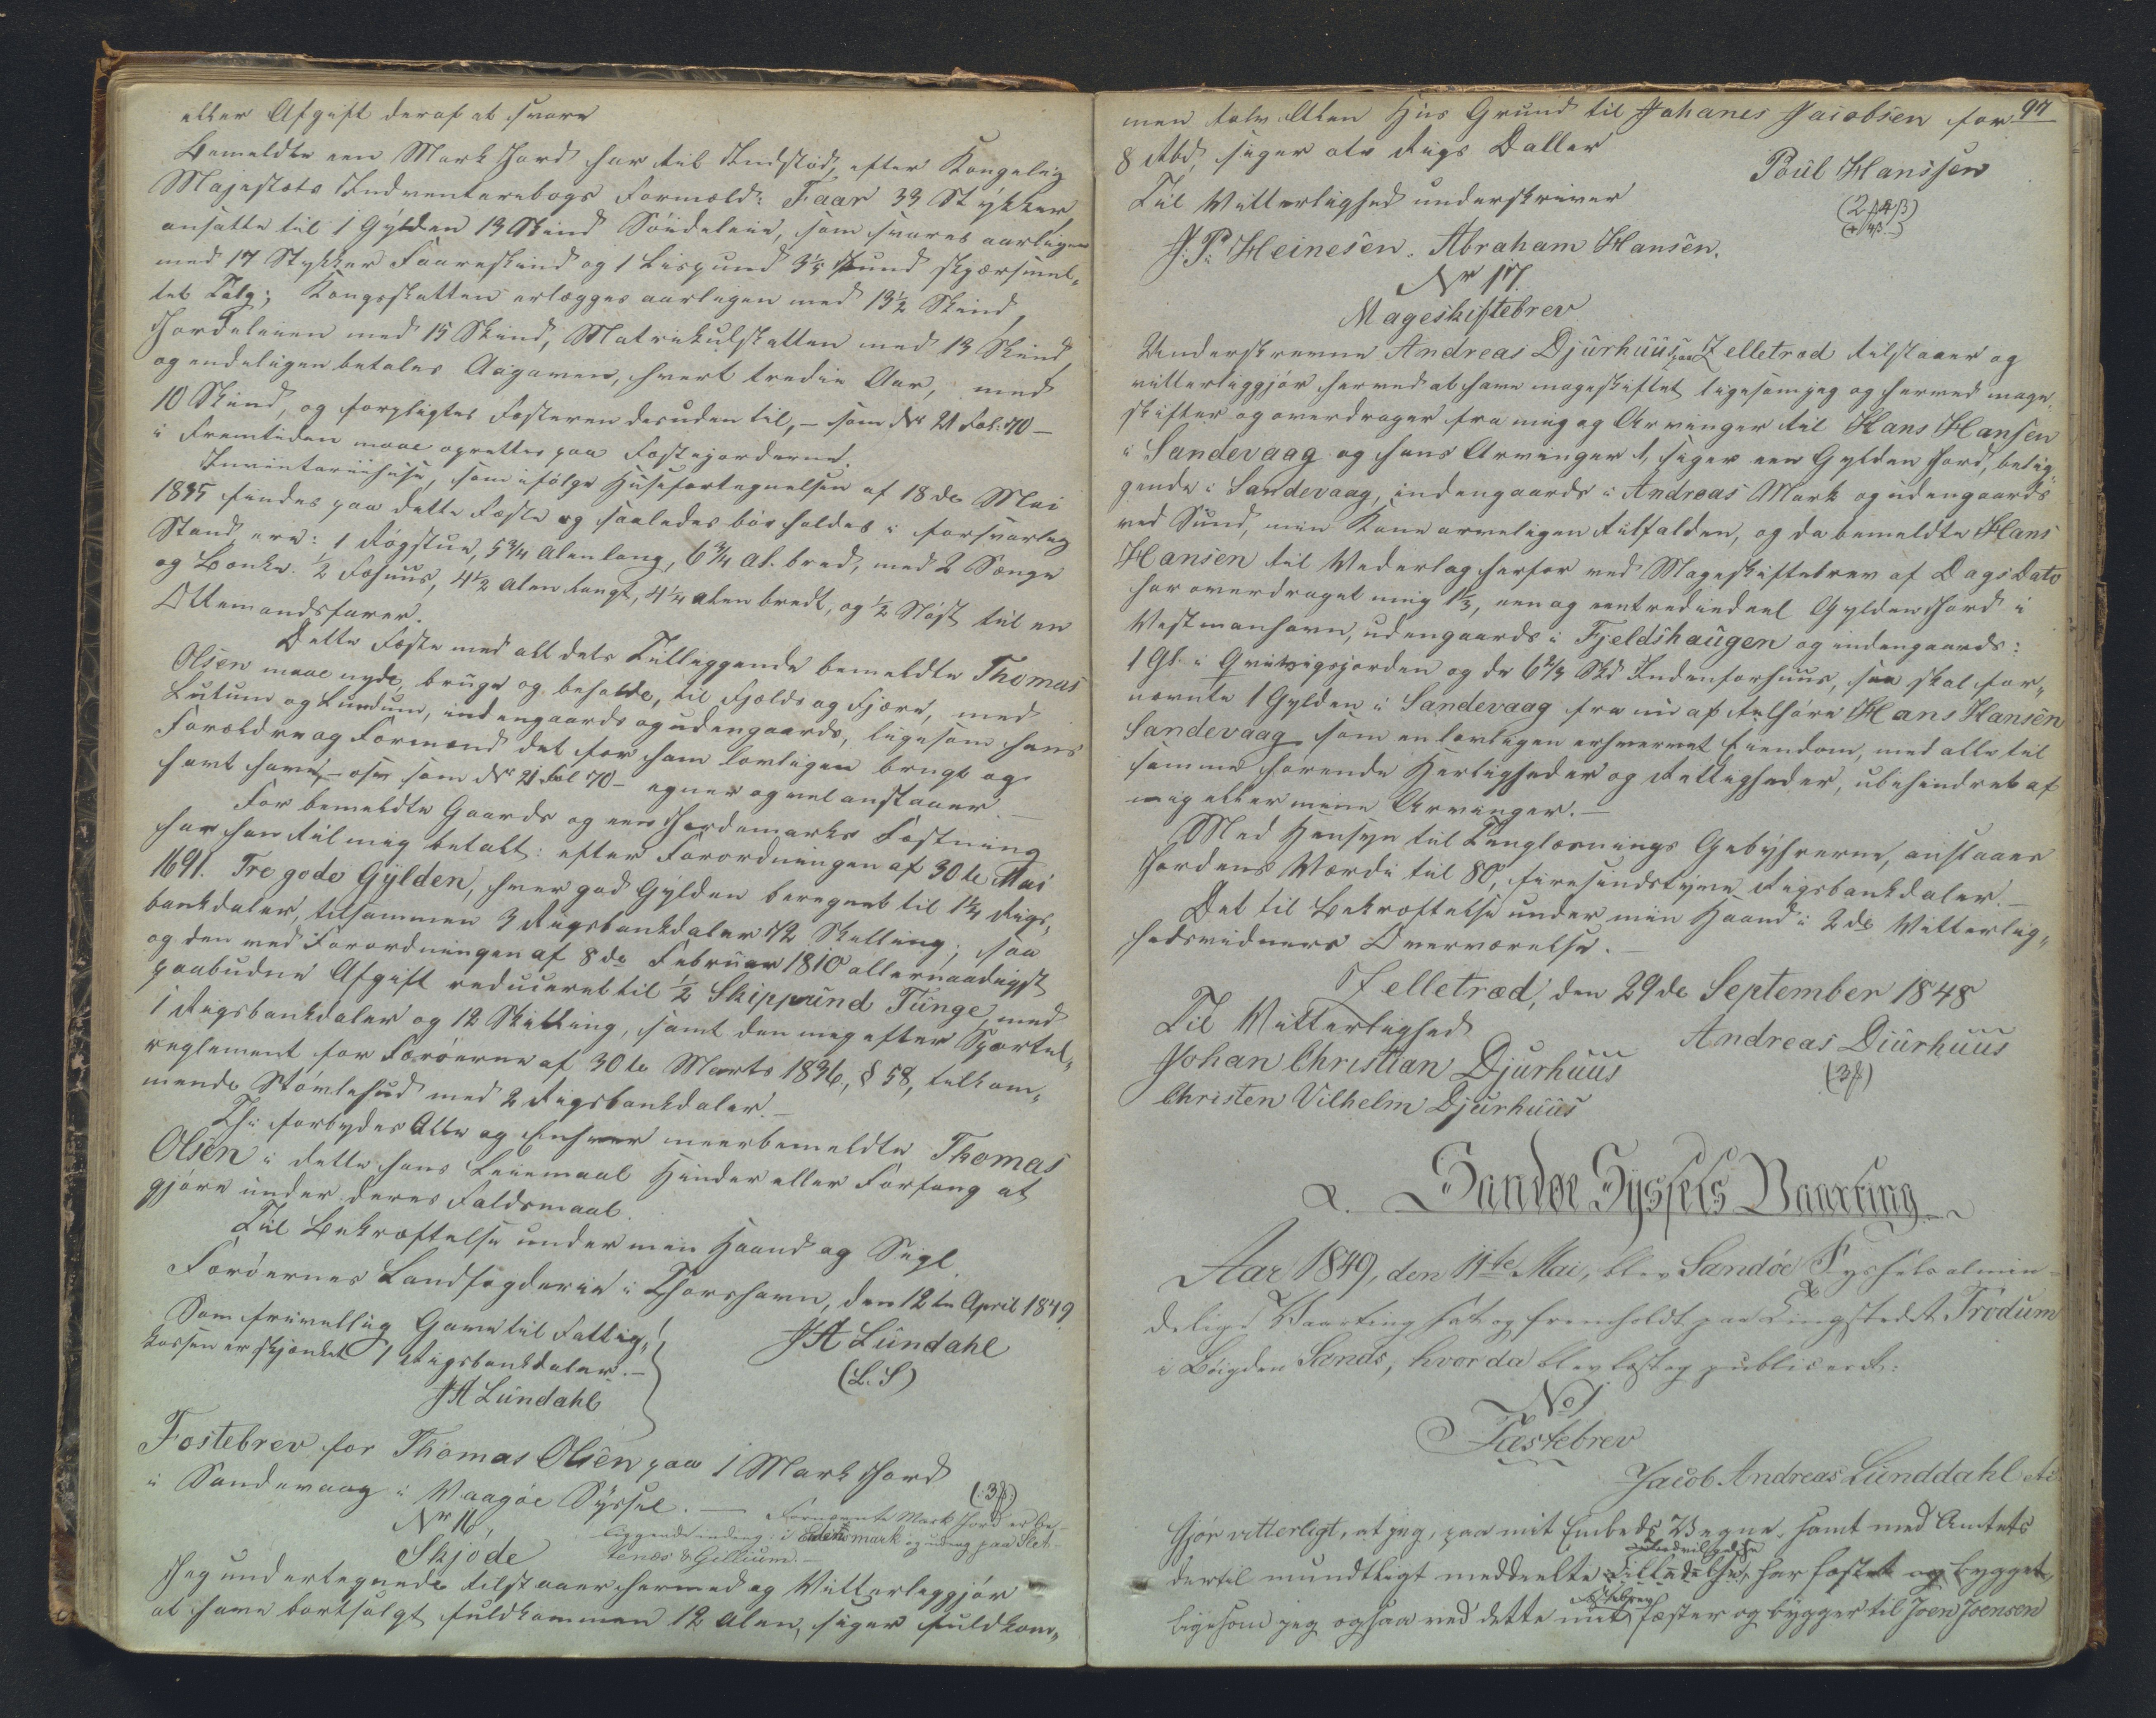 eller Afgift deraf at svare
Bemeldte een Mark Jord har til Indstød, efter Kongelig
Majestæts Indventarebogs Formæld: Faar 33 Stykker,
ansatte til 1 Gylden 13 Skind Søideleie, som svares aarligen
med 17 Stykker Faareskind og 1 Lispund 3 1/5 Pund skjærsmel-
tet Talg; Kongsskatten erlægges aarligen med 13½ Skind,
Jordeleien med 15 Skind, Matrikulskatten med 13 Skind
og endeligen betales Aagaven, hvert tredie Aar, med
10 Skind, og forpligtes Fæsteren desuden til, – som Nr 21 Fol: 70 –
i Fremtiden maae oprettes paa Fæstejorderne.
Inventariihuse, som ifølge Husefortegnelsen af 18de Mai
1835 findes paa dette Fæste og saaledes bør holdes i forsvarlig
Stand, ere: 1 Røgstue, 5¾ Alen lang, 6¾ Al. bred, med 2 Senge
og Bænke. ½ Fæhuus, 4½ Alen langt, 4¼ Alen bredt, og ½ Nøst til en
Ottemandsfarer.
Dette Fæste med alt dets Tilliggende bemeldte Thomas
Olsen maae nyde, bruge og beholde, til Fjelds og Fjære, med
Lutum og Lundum, indengaards og udengaards, ligesom hans
Forældre og Formænd det før ham lovligen brugt og
havt have, – osv som Nr 21 Fol 70 – egner og vel anstaaer. –
For bemeldte Gaards og een Jordemarks Fæstning
har han til mig betalt: efter Forordningen af 30te Mai
1691. Tre gode Gylden, hver god Gylden beregnet til 1¼ Rigs-
bankdaler, tilsammen 3 Rigsbankdaler 72 Skilling; saa
og den ved Forordningen af 8de Februar 1810 allernaadigst
paabudne Afgift reduceret til ½ Skippund Tunge, med
1 Rigsbankdaler og 12 Skilling, samt den mig efter Sportel-
reglement for Færøerne af 30te Marts 1836, § 58, tilkom-
mende Støvlehud med 2 Rigsbankdaler. –
Thi forbydes Alle og Enhver meerbemeldte Thomas
Olsen i dette hans Leiemaal Hinder eller Forfang at
gjøre under deres Faldsmaal.
Til Bekræftelse under min Haand og Segl.
Færøernes Landfogderie i Thorshavn, den 12te April 1849
Som frivillig Gave til Fattig-
kassen er skjænket 1 Rigsbankdaler. –
JA Lundahl
JA Lundahl
(L.S)
Fæstebrev for Thomas Olsen paa 1 Mark Jord
i Sandevaag i Waagøe Syssel. –
(3ß)
Nr 16,
Fornævnte Mark Jord er be-
liggende indeng: i Edensmark og udeng paa Slet-
tenæs & Gillium. –
Skjøde
Jeg undertegnede tilstaaer hermed og Vitterleggjør
at have bortsolgt fuldkommen 12 Alen, siger fuldkom-
97
men tolv Alen Huus Grund til Johanes Jacobsen for
8 Rbd, siger otte Rigs Daller
Poul Hanssen
Til Vitterlighed underskriver
J: P: Heinesen. Abraham Hansen.
Nr 17.
Mageskiftebrev
Underskrevne Andreas Djurhuus paa Zelletræd tilstaaer og
vitterliggjør herved at have mageskiftet ligesom jeg og herved mage-
skifter og overdrager fra mig og Arvinger til Hans Hansen
i Sandevaag og hans Arvinger 1, siger een Gylden Jord, belig-
gende i Sandevaag, indengaards i Andreas Mark og udengaards
ved Sund, min Kone arveligen tilfalden, og da bemeldte Hans
Hansen til Vederlag herfor ved Mageskiftebrev af Dags Dato
har overdraget mig 1⅓, een og een trediedeel Gylden Jord i
Vestmanhavn, udengaards i Fjeldshaugen og indengaards:
1 Gl: i Qvivigsjorden og de 6⅔ Skd Indenforhuus, saa skal for-
nævnte 1 Gylden i Sandevaag fra nu af tilhøre Hans Hansen
Sandevaag som en lovligen erhvervet Eiendom, med alle til
samme hørende Herligheder og Rettigheder, ubehindret af
mig eller mine Arvinger. –
Med Hensyn til Tinglæsnings Gebyhrerne, anslaaes
Jordens Værdi til 80, firesindstyve Rigsbankdaler. –
Det til Bekræftelse under min Haand i 2de Vitterlig-
hedsvidners Overværelse. –
Zelletræd, den 29de September 1848
Til Vitterlighed
Andreas Djurhuus
(3ß)
Johan Christian Djurhuus
Christen Vilhelm Djurhuus
2. Sandøe Syssels Vaarting
Aar 1849, den 11te Mai, blev Sandøe Syssels almin-
delige Vaarting sat og fremholdt paa Tingstedet Trødum
i Bøigden Sands, hvor da blev læst og publiceret:
No 1
Fæstebrev
Jacob Andreas Lunddahl
Gjør vitterligt, at jeg, paa mit Embeds Vegne, samt med Amtets
dertil mundtligt meddeelte Tilladelse, har fæstet og bygget,
ligesom jeg ogsaa ved dette mit Fæstebrev fæster og bygger til Joen Joensen